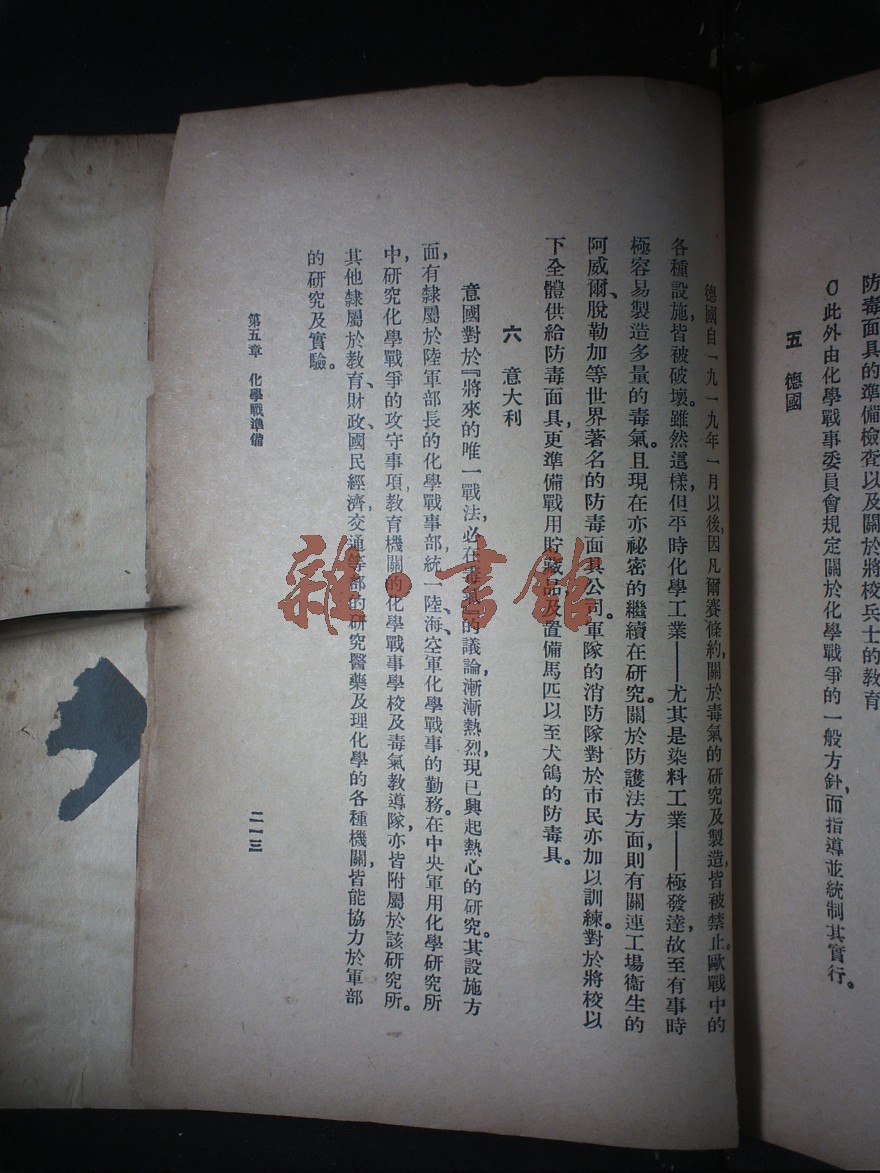 防毒面具的準備檢查以及關於將校兵士的教育
此外由化學戰事委員會規定關於化學戰爭的一般方針，而指導並統制其實行。
五　德國
德國自一九一九年一月以後，因凡爾賽條約，關於毒氣的研究及製造，皆被禁止。歐戰中的
各種設施，皆被破壞。雖然這樣，但平時化學工業——尤其是染料工業——極發達，故至有事時
極容易製造多量的毒氣。且現在亦祕密的繼續在研究。關於防護法方面，則有關連工場衞生的
阿威爾、脫勒加等世界著名的防毒面具公司。軍隊的消防隊對於市民亦加以訓練。對於將校以
下全體供給防毒面具，更準備戰用貯藏品及置備馬匹以至犬鴿的防毒具。
六　意大利
意國對於『將來的唯一戰法，必在毒氣』的議論，漸漸熱烈，現已興起熱心的研究。其設施方
面，有隸屬於陸軍部長的化學戰事部，統一陸、海、空軍化學戰事的勤務。在中央軍用化學研究所
中，研究化學戰爭的攻守事項，教育機關的化學戰事學校及毒氣教導隊，亦皆附屬於該研究所。
其他隸屬於教育、財政、國民經濟、交通等部的研究醫藥及理化學的各種機關，皆能協力於軍部
的研究及實驗。
第五章　化學戰準備
二一三
雜·書館